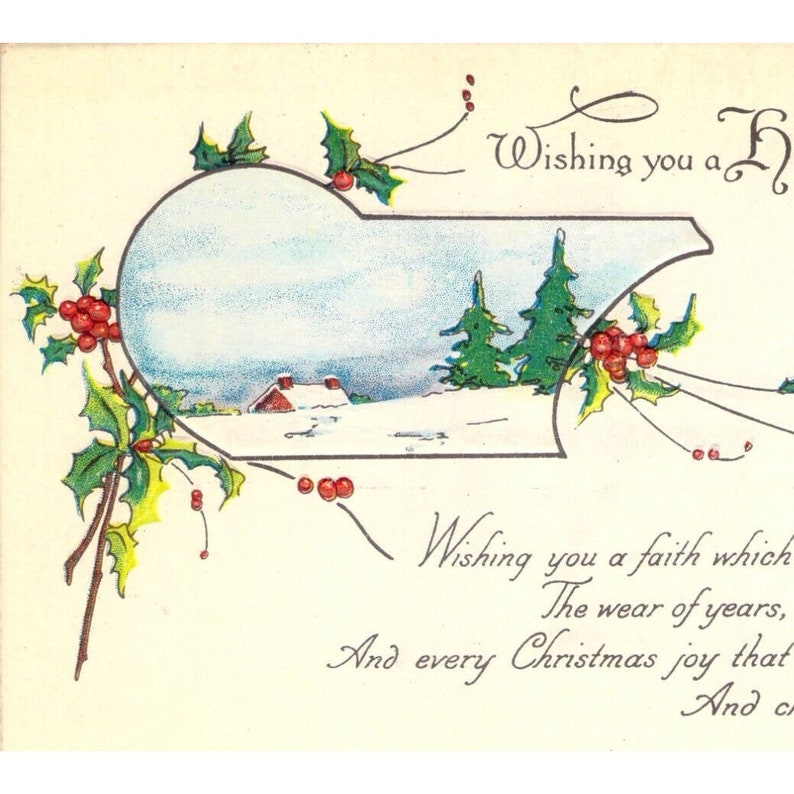 Wishing you a H
Wishing you a faith which
The wear of years,
And every Christmas joy that
And ch